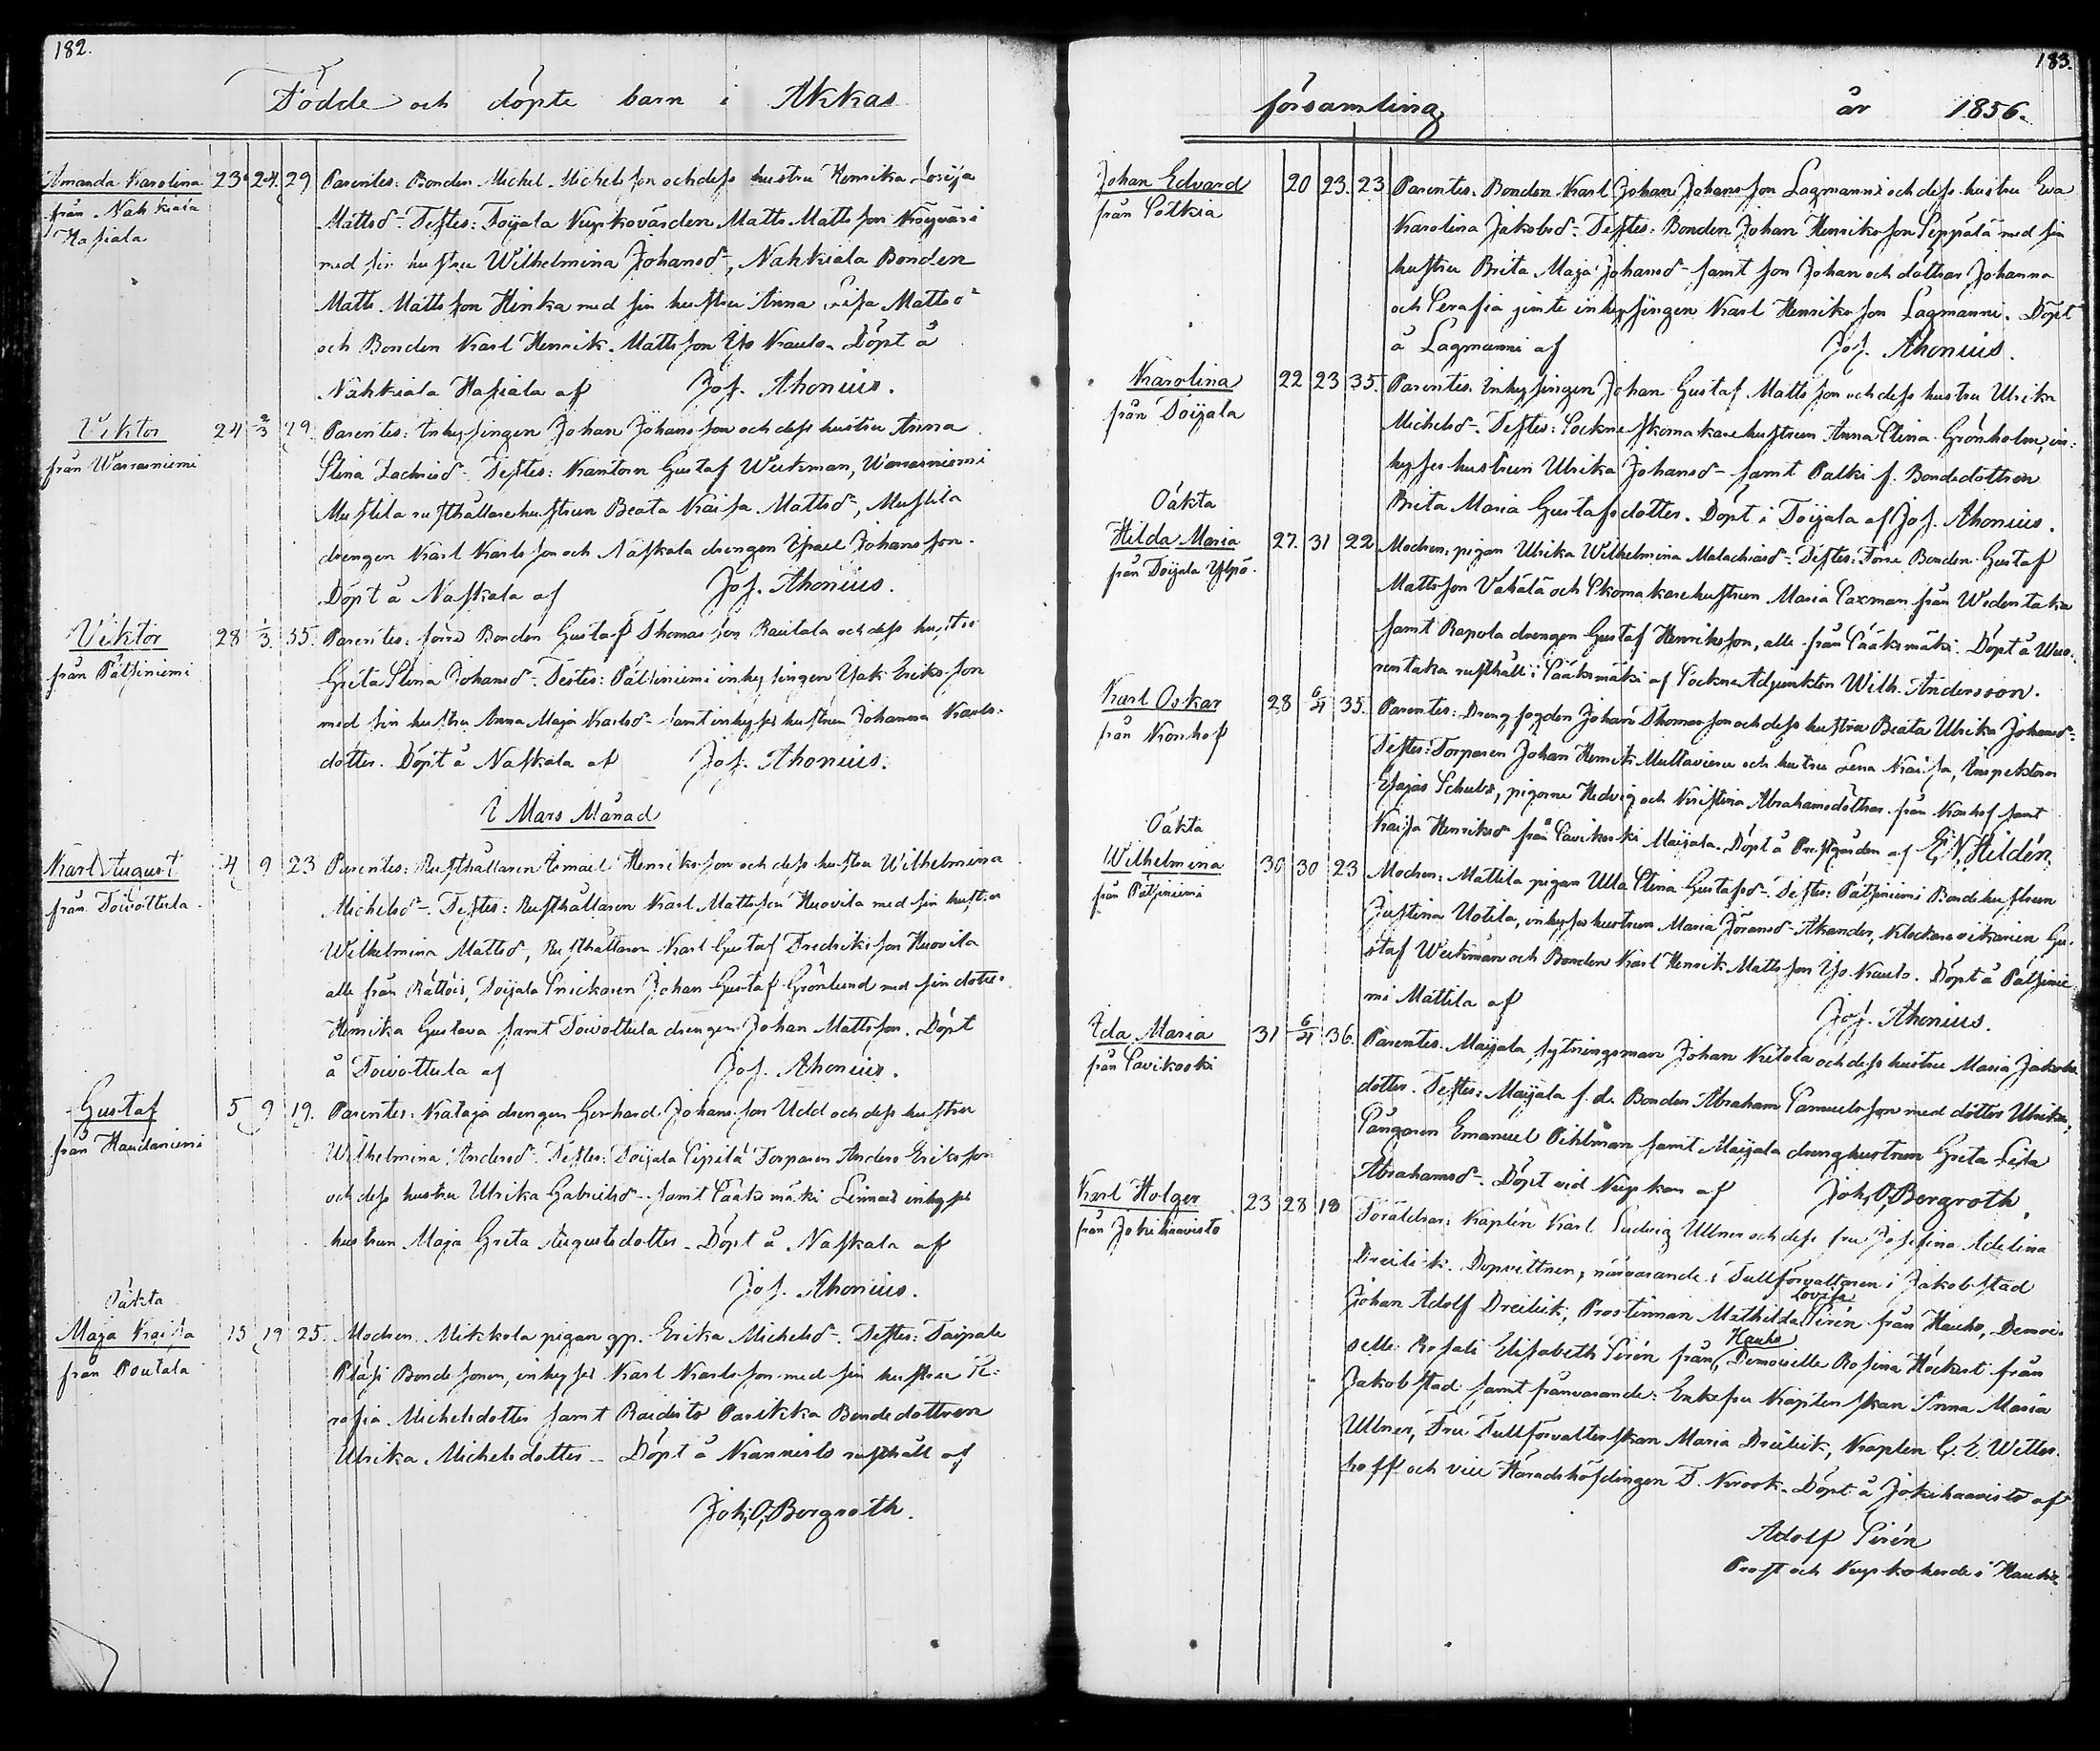 182.
Födde och döpte barn i Akkas
Amanda Karolina 23 24. 29 Parentes: Bonden Michel Michelsson och dess hustru Henrika Lovisa
från Nahkiala Mattsd. Testes: Toijala Nupkovärden Matts Mattsson
Hasiala med sin hustru Wilhelmina Johansd, Nahkiala Bonden
Matts Mattsson Hinka med sin hustru Anna Lisa Mattsd
och Bonden Karl Henrik Mattsson Yso Kauto. Döpt å
Nahkiala Hasiala af Jos. Ahonius.
Viktor 24 2/3 29. Parentes: Inhysingen Johan Johansson och dess hustru Anna
från Warrasniemi Stina Zachrisd. Testes: Kantorn Gustaf Weckman, Warrasniemi
Mustila rusthållarehustrun Beata Kaisa Mattsd, Mustila
drengen Karl Karlsson och Naskala drengen Israel Johansson.
Döpt å Naskala af Jos. Ahonius.
Viktor 28 1/3. 35. Parentes: förra Bonden Gustaf Thomasson Rautala och dess hustru
från Pätsiniemi Greta Stina Johansd. Testes: Pätsiniemi inhysingen Isak Eriksson
med sin hustru Anna Maja Karlsd samt inhyses hustrun Johanna Karls-
dotter. Döpt å Naskala af Jos. Ahonius.
I Mars Månad
Karl August 4 9 23 Parentes: Rusthållaren Ismael Henriksson och dess hustru Wilhelmina
från Toivottula Michelsd. Testes: Rusthållaren Karl Mattsson Huovila med sin hustru
Wilhelmina Mattsd, Rusthållaren Karl Gustaf Fredriksson Huovila
alle från Rättöis, Toijala Snickaren Johan Gustaf Grönlund med sin dotter
Henrika Gustava samt Toivottula drengen Johan Mattsson. Döpt
å Toivottula af Jos. Ahonius.
Gustaf 5 9 19. Parentes: Kataja drengen Gerhard Johansson Udd och dess hustru
från Haudaniemi Wilhelmina Andersd. Testes: Toijala Sipilä Torparen Anders Eriksson
och dess hustru Ulrika Gabrielsd samt Sääksmäki Lennais inhyses
hustrun Maja Greta Augustsdotter. Döpt å Naskala af
Jos. Ahonius.
Oäkta
Maja Kaisa 15 19 25. Modren: Mikkola pigan Erika Michelsd. Testes: Taipale
från Poutala Bondesonen, inhyses Karl Karlsson med sin hustru Se-
rafia Michelsdotter samt Raidisto Parikka Bondedottren
Ulrika Michelsdotter. Döpt å Kannisto rusthåll af
Joh. O. Bergroth.
183.
församling år 1856.
Johan Edvard 20 23. 23 Parentes. Bonden Karl Johan Johansson Lagmanni och dess hustru Eva
från Sotkia Karolina Jakobsd. Testes: Bonden Johan Henriksson Seppälä med sin
hustru Brita Maja Johansd samt son Johan och döttrar Johanna
och Serafia jemte inhysingen Karl Henriksson Lagmanni. Döpt
å Lagmanni af Jos. Ahonius.
Karolina 22 23 35. Parentes. Inhysingen Johan Gustaf Mattsson och dess hustru Ulrika
från Toijala Michelsd. Testes: Sockneskomakarehustrun Anna Stina Grönholm, in-
hyses hustrun Ulrika Johansd samt Palki f. Bondedottren
Brita Maria Gustafsdotter. Döpt i Toijala af Jos. Ahonius.
Oäkta
Hilda Maria 27. 31 22 Modren: pigan Ulrika Wilhelmina Malachiasd. Testes: Förre Bonden Gustaf
från Toijala Yhpö. Mattsson Vähälä och Skomakarehustrun Maria Saxman från Wedentaka
samt Rapola drengen Gustaf Henriksson, alle från Sääksmäki. Döpt å
rentaka rusthåll i Sääksmäki af Sockne Adjunkten Wilh. Andersson.
Karl Oskar 28 6/4 35. Parentes: Drengfogden Johan Thomasson och dess hustru Beata Ulrika Johansd.
från Kronhof Testes: Torparen Johan Henrik Multavieru och hustru Lena Kaisa, Inspektorn
Esajas Schulz, pigorne Hedvig och Kristina Abrahamsdöttrar från Kronhof samt
Kaisa Henriksd från Savikoski Maijala. Döpt å Prestgården af E. N. Hildén.
Oäkta
Wilhelmina 30 30 23 Modren: Mattila pigan Ulla Stina Gustafsd. Testes: Pätsiniemi Bondehustrun
från Pätsiniemi Justina Uotila, inhyses hustrun Maria Göransd Akander, Klockare vikarien Gu-
staf Weckman och Bonden Karl Henrik Mattsson Yso Kauto. Döpt å Pätsinie-
mi Mattila af Jos. Ahonius.
Ida Maria 31 6/4 36. Parentes. Maijala sytningsman Johan Ketola och dess hustru Maria Jakobs
från Savikoski dotter. Testes: Maijala f. d. Bonden Abraham Samuelsson med dotter Ulrika,
Sångaren Emanuel Pihlman samt Maijala drenghustrun Greta Lisa
Abrahamsd. Döpt vid Kyrkan af Joh. O. Bergroth.
Karl Holger 23 28 18 Föräldrar: Kaptén Karl Ludvig Ullner och dess fru Josefina Adelina
från Jokihaavisto Dreilick. Dopvittnen, närvarande: Tullförvaltaren i Jakobstad
Johan Adolf Dreilick, Prostinnan Mathilda Lovisa Sirén från Hauho, Demoi-
selle Rosali Elisabeth Sirén från Hauho, Demoiselle Rosina Höckert från
Jakobstad samt frånvarande: Enkefru Kaptenskan Anna Maria
Ullner, Fru Tullförvalterskan Maria Dreilick, Kapten C. E. Witter-
hoff och vice Häradshöfdingen F. Krook. Döpt å Jokihaavisto af
Adolf Sirén
Prost och Kyrkoherde i Hauho